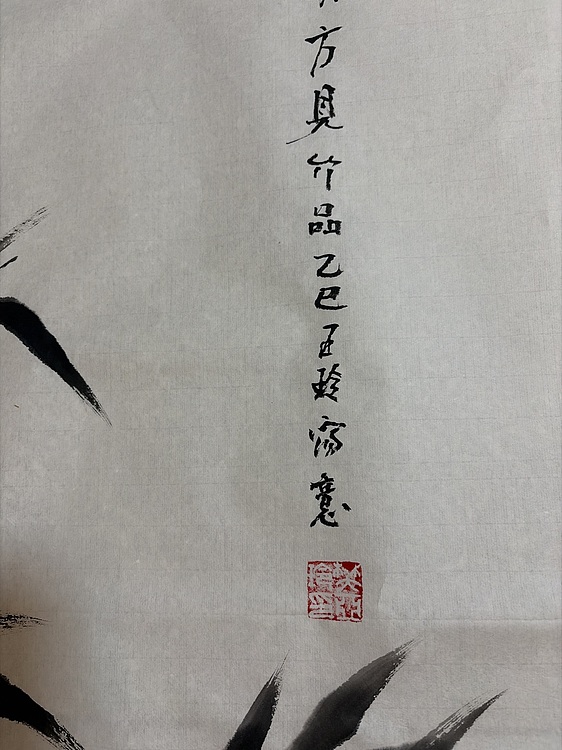 方見竹品乙巳王玲寫意